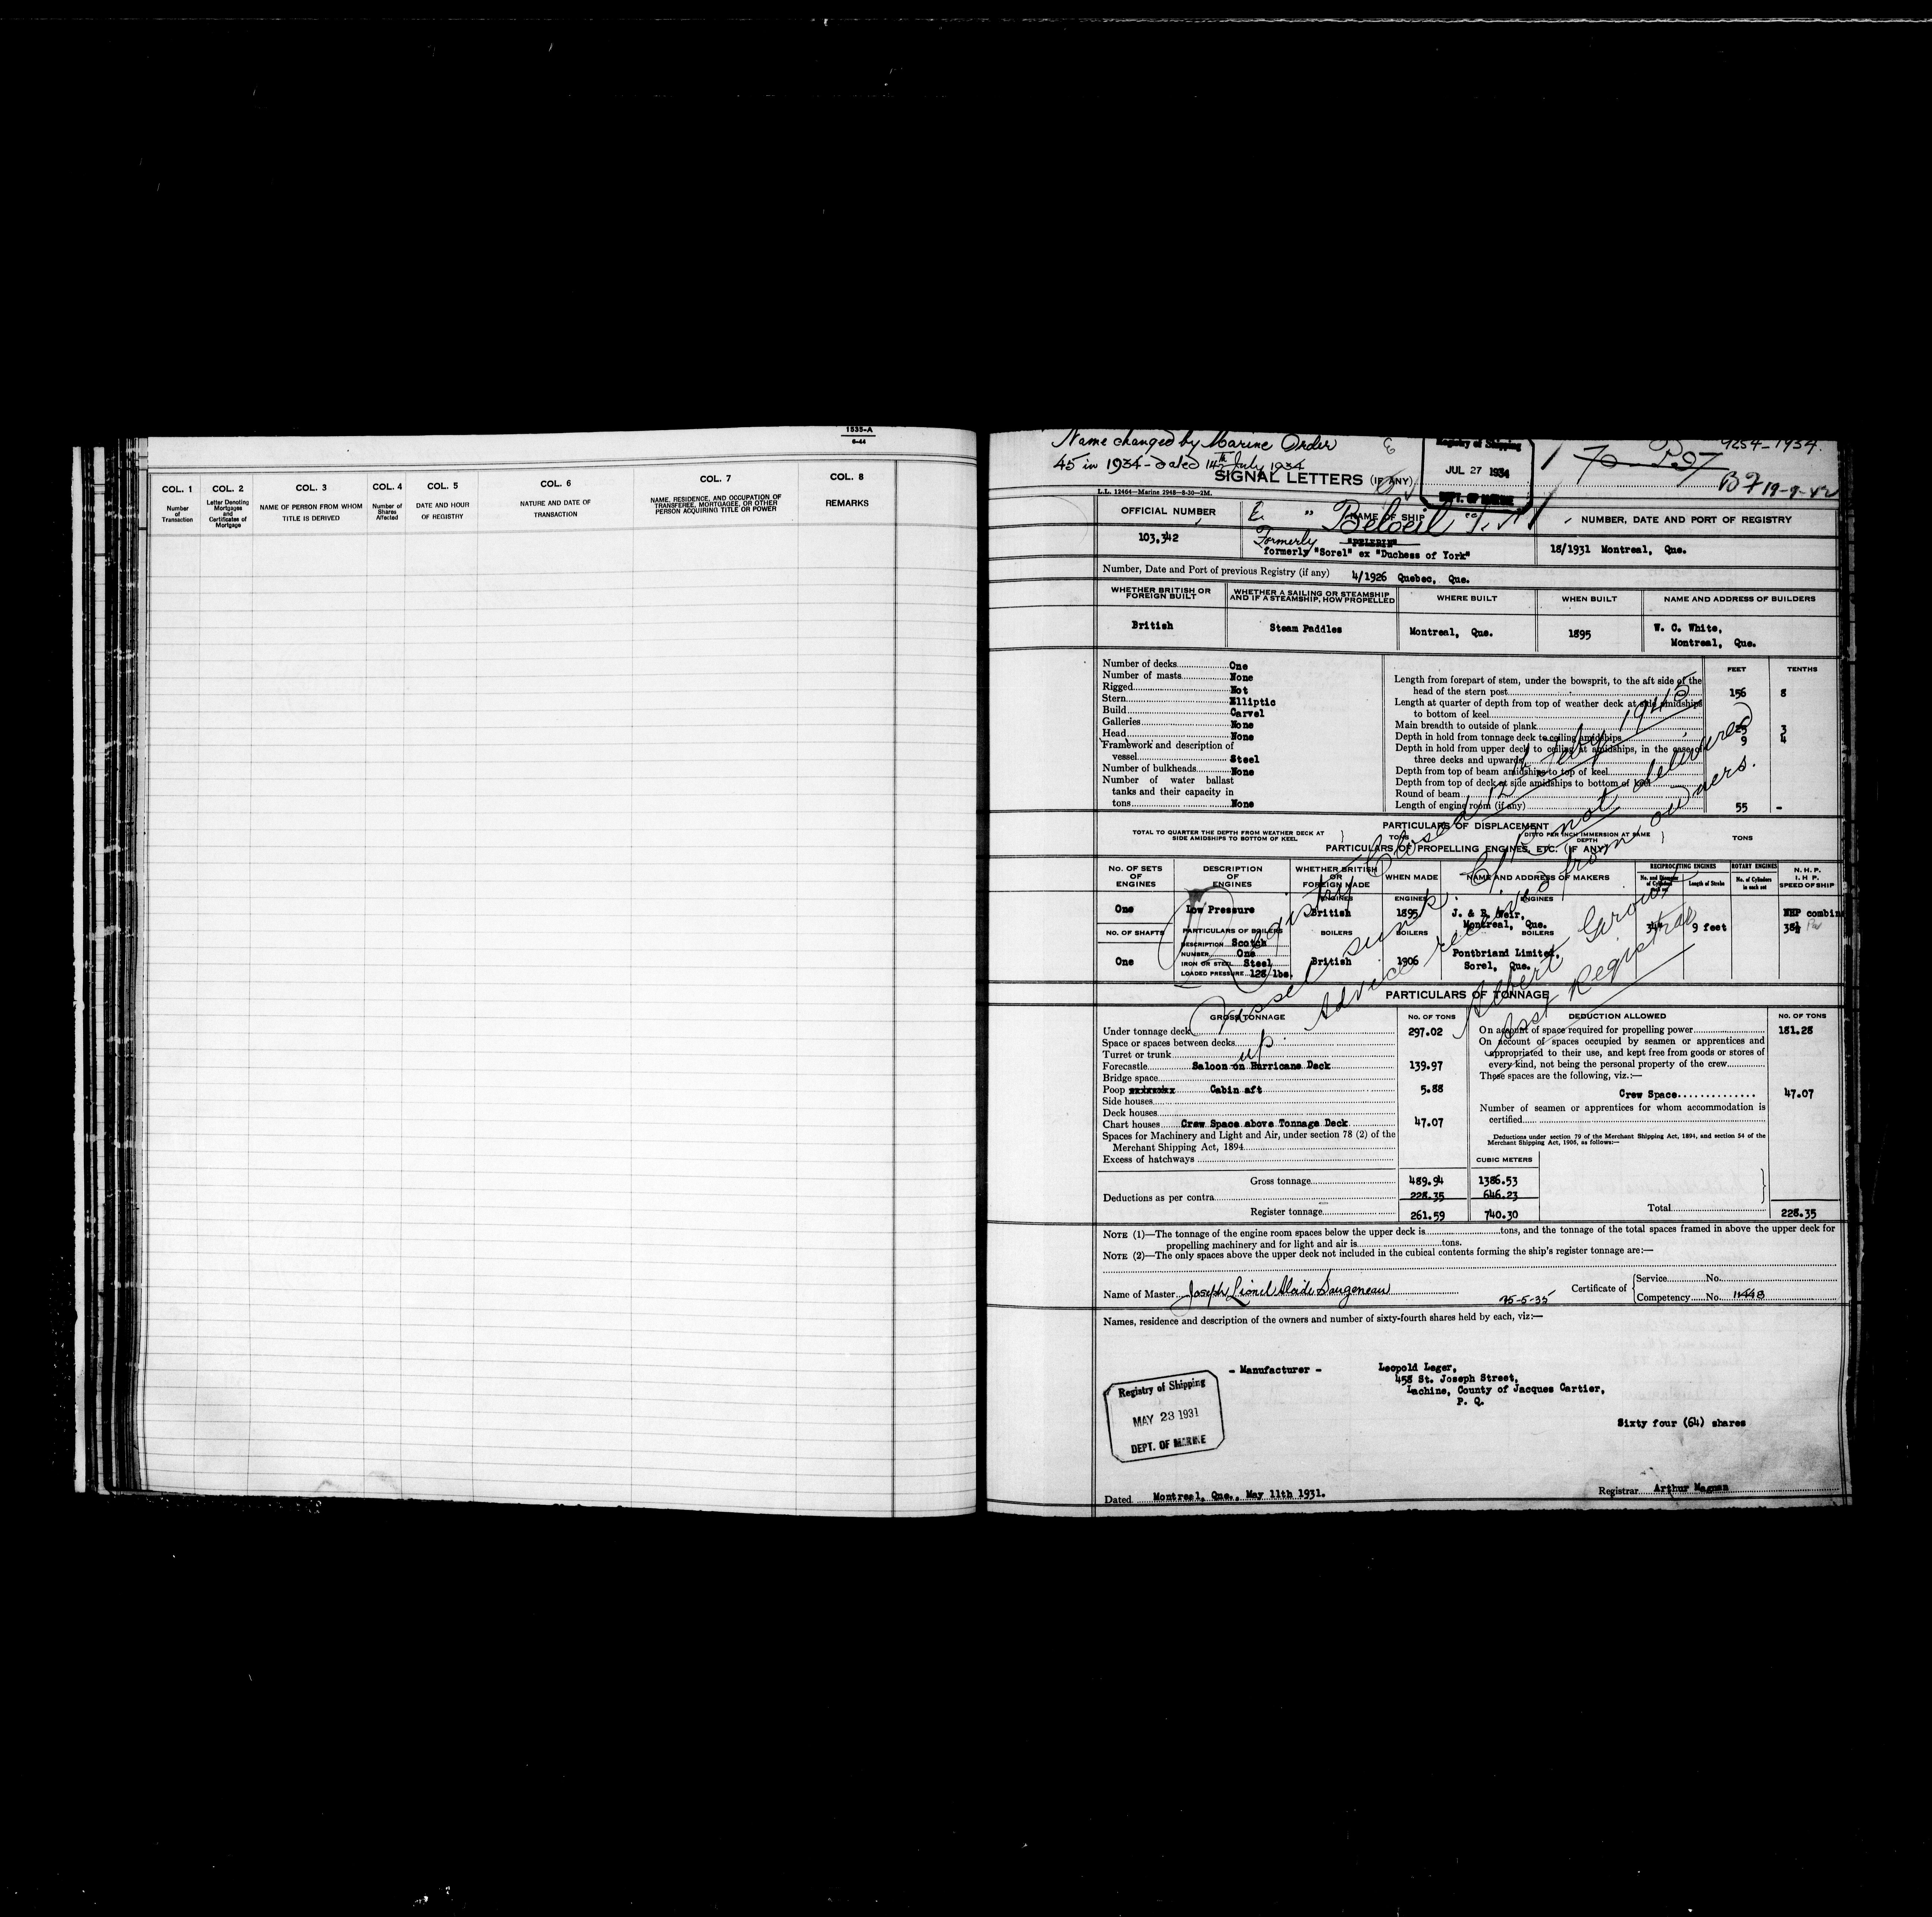 1535-A
6-44
COL. 1 COL. 2 COL. 3 COL. 4 COL. 5 COL. 6 COL. 7 COL. 8
Number of Transaction
Letter Denoting Mortgages and Certificates of Mortgage
NAME OF PERSON FROM WHOM TITLE IS DERIVED
Number of Shares Affected
DATE AND HOUR OF REGISTRY
NATURE AND DATE OF TRANSACTION
NAME, RESIDENCE, AND OCCUPATION OF TRANSFEREE, MORTGAGEE, OR OTHER PERSON ACQUIRING TITLE OR POWER
REMARKS
Name changed by Marine Order
45 in 1934 - dated 14th July 1934
Registry of Shipping
JUL 27 1934
DEPT. OF MARINE
9254-1934.
BF 19-9-42
SIGNAL LETTERS (IF ANY)
L.L. 12464—Marine 2948—8-30—2M.
OFFICIAL NUMBER
NAME OF SHIP
NUMBER, DATE AND PORT OF REGISTRY
" Beloeil "
103,342
Formerly "PELERIN"
formerly "Sorel" ex "Duchess of York"
18/1931 Montreal, Que.
Number, Date and Port of previous Registry (if any) 4/1926 Quebec, Que.
WHETHER BRITISH OR FOREIGN BUILT
WHETHER A SAILING OR STEAMSHIP AND IF A STEAMSHIP, HOW PROPELLED
WHERE BUILT
WHEN BUILT
NAME AND ADDRESS OF BUILDERS
British
Steam Paddles
Montreal, Que.
1895
W. C. White,
Montreal, Que.
FEET TENTHS
Number of decks One
Number of masts None
Rigged Not
Stern Elliptic
Build Carvel
Galleries None
Head None
Framework and description of
vessel Steel
Number of bulkheads None
Number of water ballast
tanks and their capacity in
tons None
Length from forepart of stem, under the bowsprit, to the aft side of the
head of the stern post 156 8
Length at quarter of depth from top of weather deck at side amidships
to bottom of keel
Main breadth to outside of plank 25 3
Depth in hold from tonnage deck to ceiling amidships 9 4
Depth in hold from upper deck to ceiling at amidships, in the case of
three decks and upwards
Depth from top of beam amidships to top of keel
Depth from top of deck at side amidships to bottom of keel
Round of beam
Length of engine room (if any) 55 -
PARTICULARS OF DISPLACEMENT
TOTAL TO QUARTER THE DEPTH FROM WEATHER DECK AT SIDE AMIDSHIPS TO BOTTOM OF KEEL
TONS
DITTO PER INCH IMMERSION AT SAME DEPTH
TONS
PARTICULARS OF PROPELLING ENGINES, ETC. (IF ANY)
No. OF SETS OF ENGINES
DESCRIPTION OF ENGINES
WHETHER BRITISH OR FOREIGN MADE
WHEN MADE
NAME AND ADDRESS OF MAKERS
RECIPROCATING ENGINES
No. and Diameter of Cylinders in each set
Length of Stroke
ROTARY ENGINES
No. of Cylinders in each set
N. H. P.
I. H. P.
SPEED OF SHIP
ENGINES ENGINES ENGINES
One Low Pressure British 1895 J. & R. Weir,
Montreal, Que.
34" 9 feet
NHP combin
38½
NO. OF SHAFTS
PARTICULARS OF BOILERS
BOILERS BOILERS BOILERS
DESCRIPTION Scotch
NUMBER One
IRON OR STEEL Steel
LOADED PRESSURE 128 lbs.
One British 1906 Pontbriand Limited,
Sorel, Que.
Registry Closed 12th Feby 1943
Vessel sunk. C/R not delivered
up. Advice received from owners.
Albert Giroux
Asst Registrar
PARTICULARS OF TONNAGE
GROSS TONNAGE
NO. OF TONS
DEDUCTION ALLOWED
NO. OF TONS
Under tonnage deck 297.02
Space or spaces between decks
Turret or trunk
Forecastle Saloon on Hurricane Deck 139.97
Bridge space
Poop Cabin aft 5.88
Side houses
Deck houses
Chart houses Crew Space above Tonnage Deck 47.07
Spaces for Machinery and Light and Air, under section 78 (2) of the
Merchant Shipping Act, 1894
Excess of hatchways
Gross tonnage 489.94 1386.53
Deductions as per contra 228.35 646.23
Register tonnage 261.59 740.30
On account of space required for propelling power 181.28
On account of spaces occupied by seamen or apprentices and
appropriated to their use, and kept free from goods or stores of
every kind, not being the personal property of the crew
These spaces are the following, viz.:—
Crew Space 47.07
Number of seamen or apprentices for whom accommodation is
certified
Deductions under section 79 of the Merchant Shipping Act, 1894, and section 54 of the
Merchant Shipping Act, 1906, as follows:—
CUBIC METERS
Total 228.35
NOTE (1)—The tonnage of the engine room spaces below the upper deck is tons, and the tonnage of the total spaces framed in above the upper deck for
propelling machinery and for light and air is tons.
NOTE (2)—The only spaces above the upper deck not included in the cubical contents forming the ship's register tonnage are:—
Name of Master Joseph Lionel 25-5-35
Certificate of
Service No.
Competency No. 11448
Names, residence and description of the owners and number of sixty-fourth shares held by each, viz:—
- Manufacturer -
Leopold Leger,
458 St. Joseph Street,
Lachine, County of Jacques Cartier,
P. Q.
Sixty four (64) shares
Registry of Shipping
MAY 23 1931
DEPT. OF MARINE
Dated Montreal, Que., May 11th 1931.
Registrar Arthur Magnan